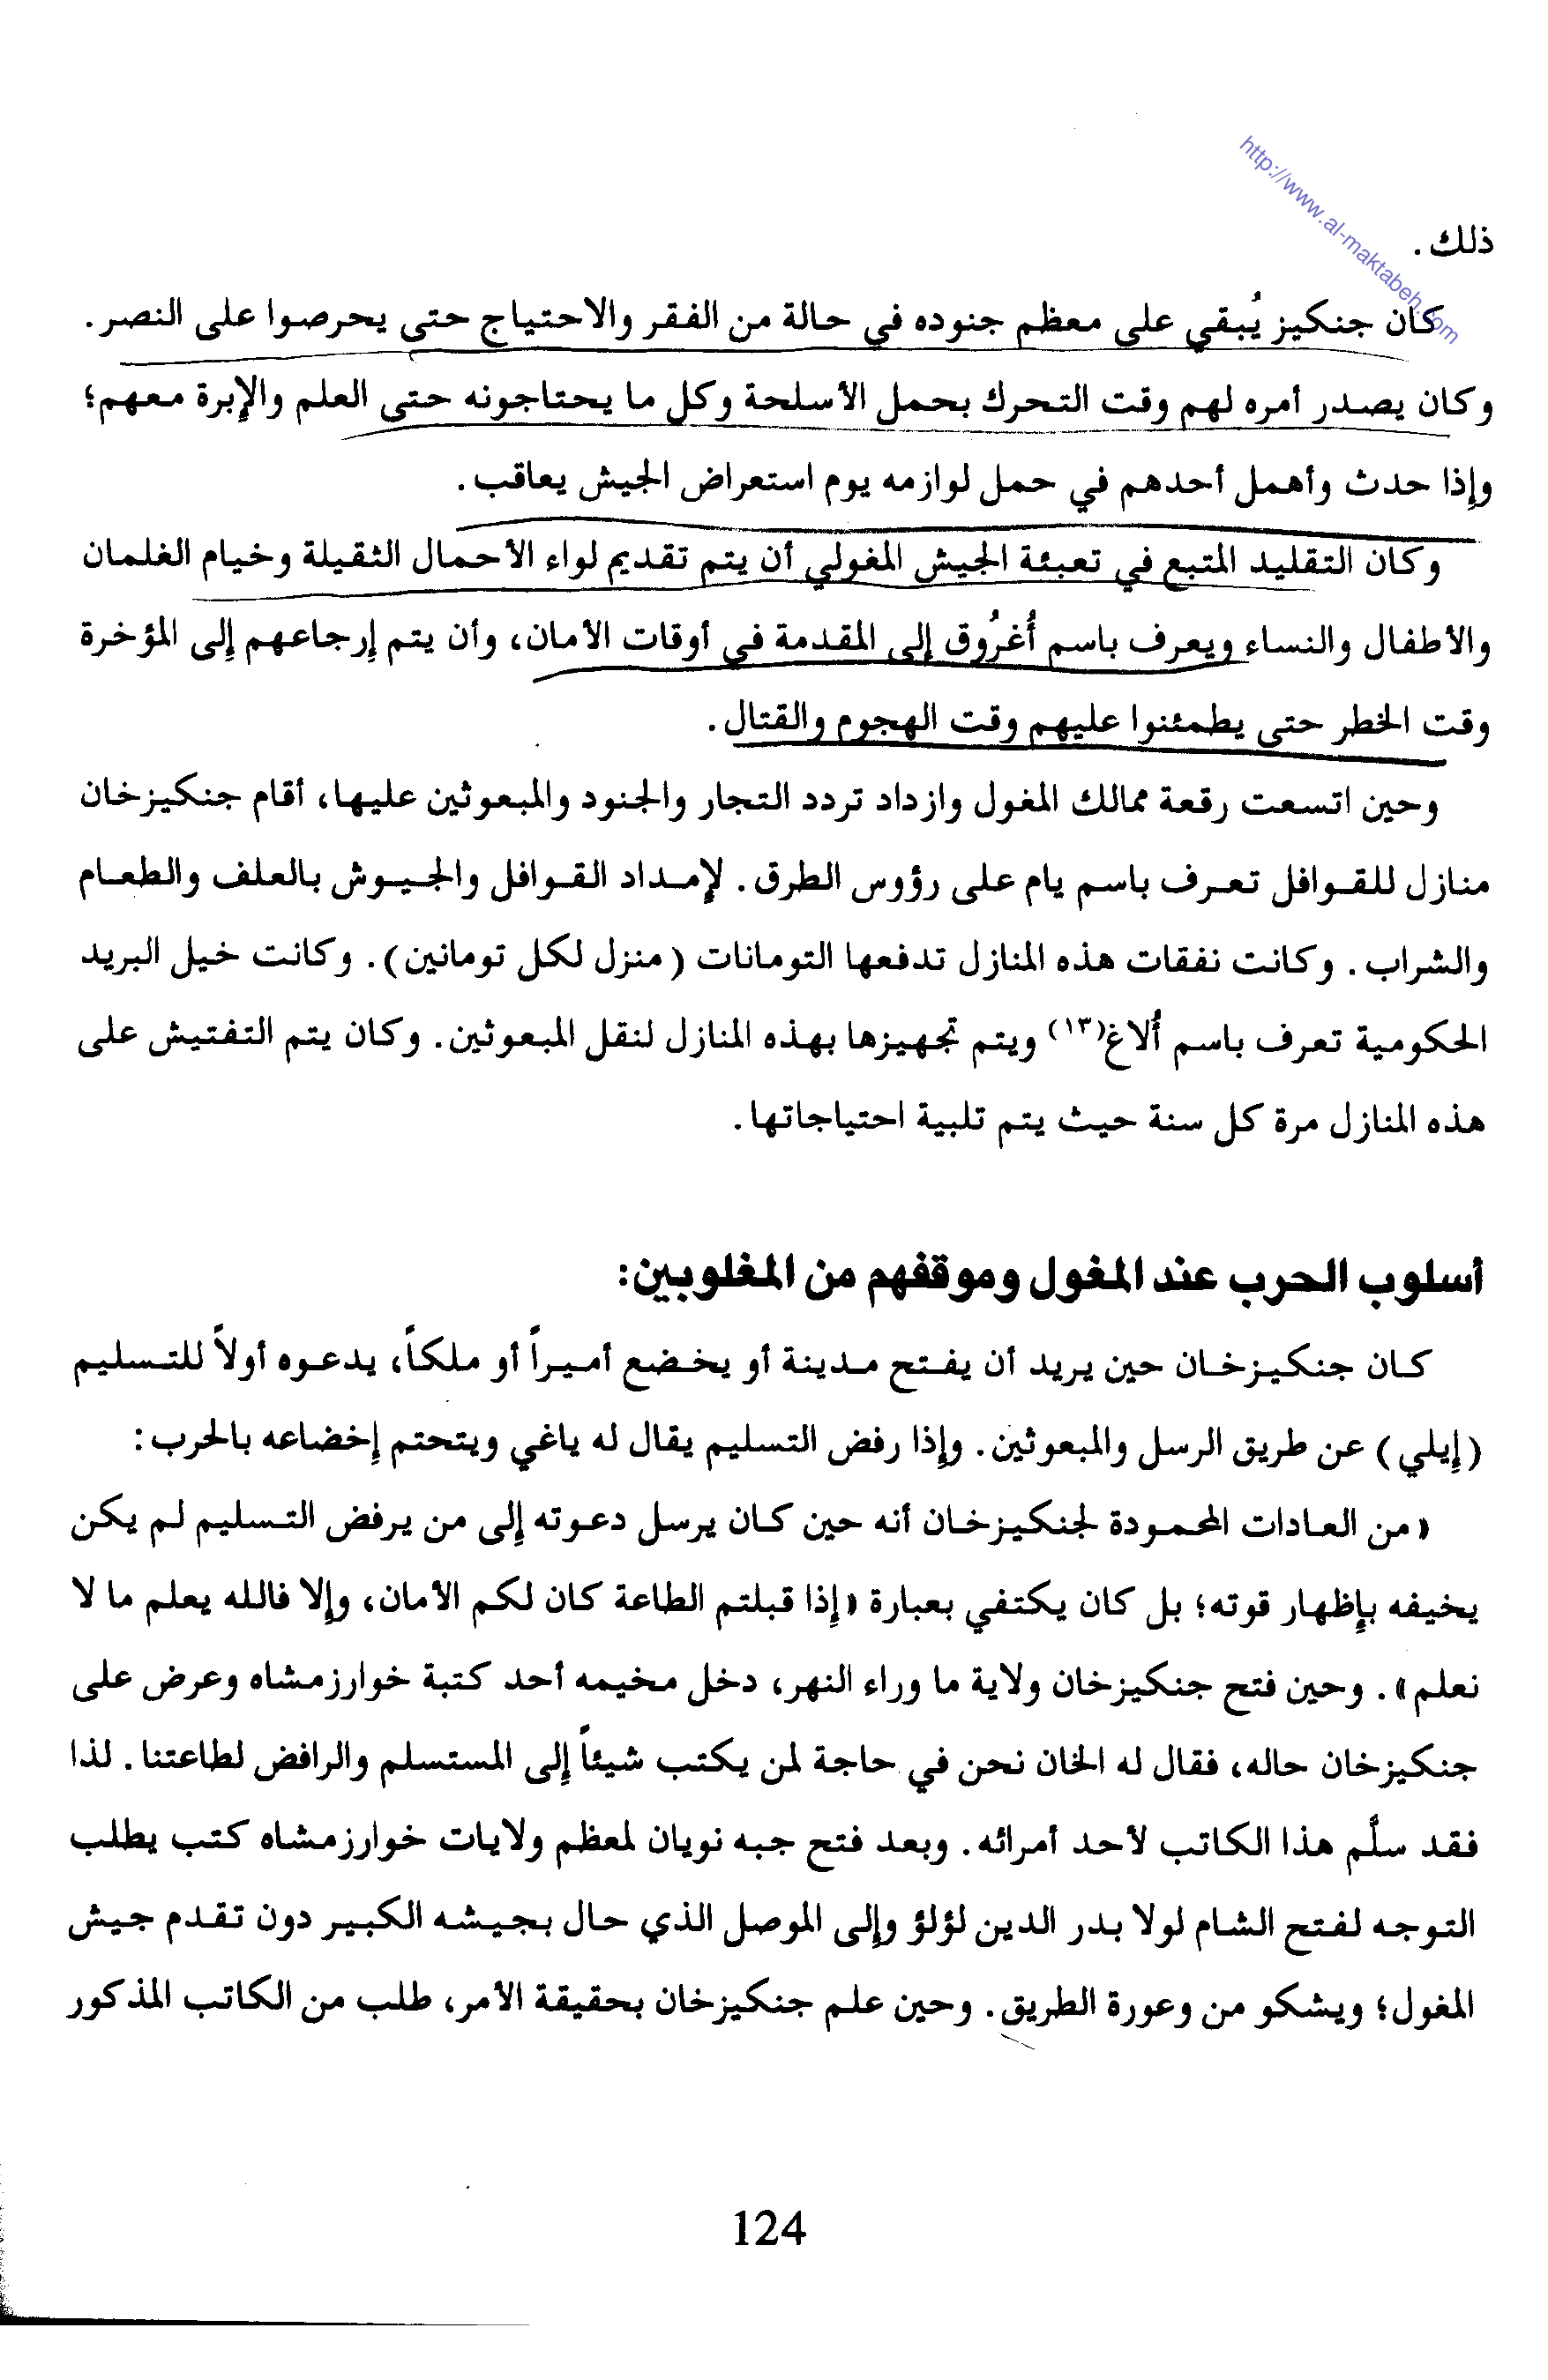 http://www.al-maktabeh.com
ذلك .
كان جنكيز يُبقي على معظم جنوده في حالة من الفقر والاحتياج حتى يحرصوا على النصر.
وكان يصدر أمره لهم وقت التحرك بحمل الأسلحة وكل ما يحتاجونه حتى العلم والإبرة معهم؛
وإذا حدث وأهمل أحدهم في حمل لوازمه يوم استعراض الجيش يعاقب .
وكان التقليد المتبع في تعبئة الجيش المغولي أن يتم تقديم لواء الأحمال الثقيلة وخيام الغلمان
والأطفال والنساء ويعرف باسم أُغرُوق إلى المقدمة في أوقات الأمان، وأن يتم إرجاعهم إلى المؤخرة
وقت الخطر حتى يطمئنوا عليهم وقت الهجوم والقتال .
وحين اتسعت رقعة ممالك المغول وازداد تردد التجار والجنود والمبعوثين عليها، أقام جنكيزخان
منازل للقوافل تعرف باسم يام على رؤوس الطرق . لإمداد القوافل والجيوش بالعلف والطعام
والشراب . وكانت نفقات هذه المنازل تدفعها التومانات (منزل لكل تومانين) . وكانت خيل البريد
الحكومية تعرف باسم ألاغ(١٣) ويتم تجهيزها بهذه المنازل لنقل المبعوثين. وكان يتم التفتيش على
هذه المنازل مرة كل سنة حيث يتم تلبية احتياجاتها .
أسلوب الحرب عند المغول وموقفهم من المغلوبين:
كان جنكيزخان حين يريد أن يفتح مدينة أو يخضع أميراً أو ملكاً، يدعوه أولاً للتسليم
(إيلي) عن طريق الرسل والمبعوثين. وإذا رفض التسليم يقال له ياغي ويتحتم إخضاعه بالحرب:
«من العادات المحمودة لجنكيزخان أنه حين كان يرسل دعوته إلى من يرفض التسليم لم يكن
يخيفه بإظهار قوته؛ بل كان يكتفي بعبارة «إذا قبلتم الطاعة كان لكم الأمان، وإلا فالله يعلم ما لا
نعلم» . وحين فتح جنكيزخان ولاية ما وراء النهر، دخل مخيمه أحد كتبة خوارزمشاه وعرض على
جنكيزخان حاله، فقال له الخان نحن في حاجة لمن يكتب شيئاً إلى المستسلم والرافض لطاعتنا . لذا
فقد سلَّم هذا الكاتب لأحد أمرائه . وبعد فتح جبه نويان لمعظم ولايات خوارزمشاه كتب يطلب
التوجه لفتح الشام لولا بدر الدين لؤلؤ وإلى الموصل الذي حال بجيشه الكبير دون تقدم جيش
المغول؛ ويشكو من وعورة الطريق. وحين علم جنكيزخان بحقيقة الأمر، طلب من الكاتب المذكور
124